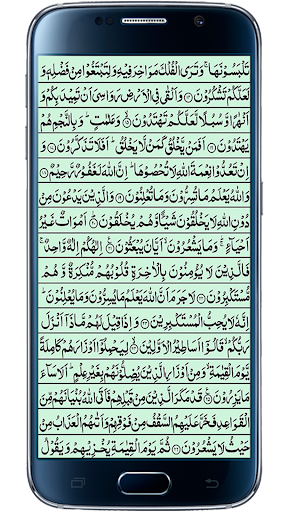 تَلْبَسُوْنَهَا ۚ وَتَرَى الْفُلْكَ مَوَاخِرَ فِيْهِ وَلِتَبْتَغُوْا مِنْ فَضْلِهٖ وَ
لَعَلَّكُمْ تَشْكُرُوْنَ ۝۱۴ وَاَلْقٰى فِى الْاَرْضِ رَوَاسِىَ اَنْ تَمِيْدَ بِكُمْ وَ
اَنْهٰرًا وَّسُبُلًا لَّعَلَّكُمْ تَهْتَدُوْنَ ۝۱۵ وَعَلٰمٰتٍ ؕ وَبِالنَّجْمِ هُمْ
يَهْتَدُوْنَ ۝۱۶ اَفَمَنْ يَّخْلُقُ كَمَنْ لَّا يَخْلُقُ ؕ اَفَلَا تَذَكَّرُوْنَ ۝۱۷ وَ
اِنْ تَعُدُّوْا نِعْمَةَ اللّٰهِ لَا تُحْصُوْهَا ؕ اِنَّ اللّٰهَ لَغَفُوْرٌ رَّحِيْمٌ ۝۱۸
وَاللّٰهُ يَعْلَمُ مَا تُسِرُّوْنَ وَمَا تُعْلِنُوْنَ ۝۱۹ وَالَّذِيْنَ يَدْعُوْنَ مِنْ
دُوْنِ اللّٰهِ لَا يَخْلُقُوْنَ شَيْـًٔا وَّهُمْ يُخْلَقُوْنَ ۝۲۰ اَمْوَاتٌ غَيْرُ
اَحْيَآءٍ ۚ وَمَا يَشْعُرُوْنَ ۙ اَيَّانَ يُبْعَثُوْنَ ۝۲۱ اِلٰهُكُمْ اِلٰهٌ وَّاحِدٌ ۚ
فَالَّذِيْنَ لَا يُؤْمِنُوْنَ بِالْاٰخِرَةِ قُلُوْبُهُمْ مُّنْكِرَةٌ وَّهُمْ
مُّسْتَكْبِرُوْنَ ۝۲۲ لَا جَرَمَ اَنَّ اللّٰهَ يَعْلَمُ مَا يُسِرُّوْنَ وَمَا يُعْلِنُوْنَ ؕ
اِنَّهٗ لَا يُحِبُّ الْمُسْتَكْبِرِيْنَ ۝۲۳ وَاِذَا قِيْلَ لَهُمْ مَّاذَاۤ اَنْزَلَ
رَبُّكُمْ ۙ قَالُوْۤا اَسَاطِيْرُ الْاَوَّلِيْنَ ۝۲۴ لِيَحْمِلُوْۤا اَوْزَارَهُمْ كَامِلَةً
يَّوْمَ الْقِيٰمَةِ ۙ وَمِنْ اَوْزَارِ الَّذِيْنَ يُضِلُّوْنَهُمْ بِغَيْرِ عِلْمٍ ؕ اَلَا سَآءَ
مَا يَزِرُوْنَ ۝۲۵ قَدْ مَكَرَ الَّذِيْنَ مِنْ قَبْلِهِمْ فَاَتَى اللّٰهُ بُنْيَانَهُمْ مِّنَ
الْقَوَاعِدِ فَخَرَّ عَلَيْهِمُ السَّقْفُ مِنْ فَوْقِهِمْ وَاَتٰىهُمُ الْعَذَابُ مِنْ
حَيْثُ لَا يَشْعُرُوْنَ ۝۲۶ ثُمَّ يَوْمَ الْقِيٰمَةِ يُخْزِيْهِمْ وَيَقُوْلُ